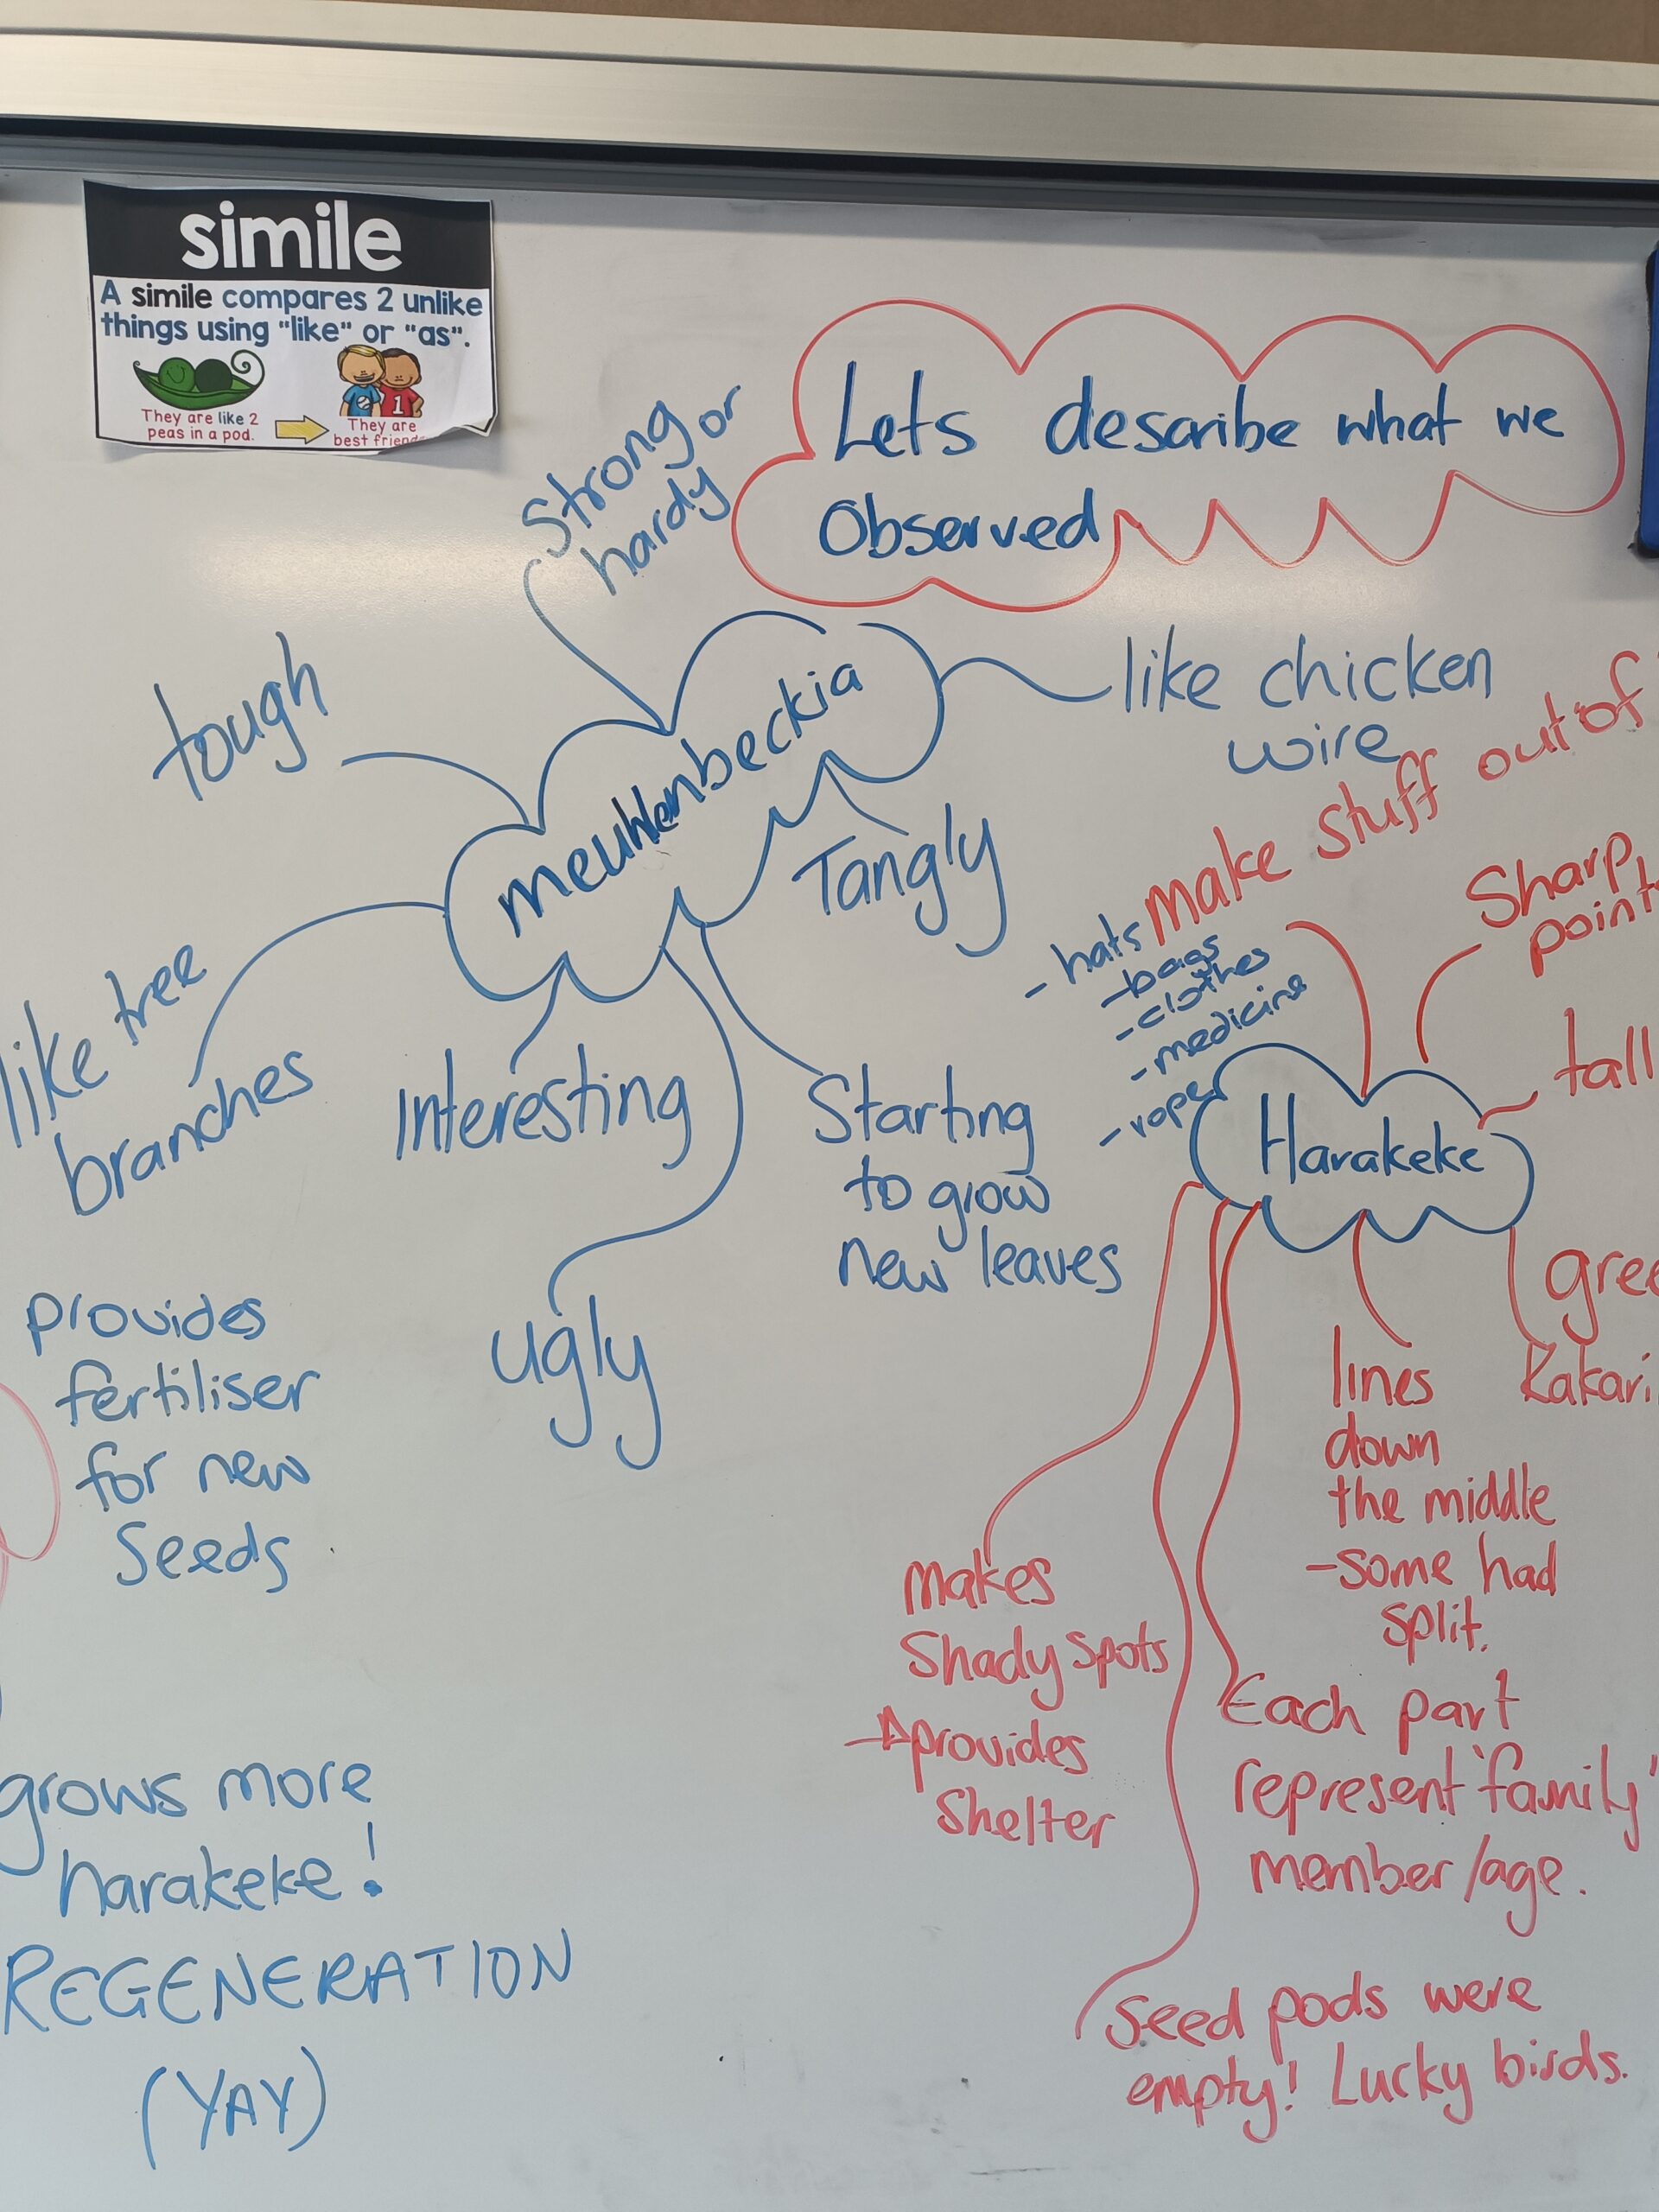 simile
A simile compares 2 unlike
things using "like" or "as".
They are like 2
peas in a pod.
They are
best friend
Lets describe what we
Observed
meuhlenbeckia
Strong or
hardy
tough
like chicken
wire
Tangly
like tree
branches
Interesting
ugly
Starting
to grow
new leaves
Harakeke
make stuff out of
- hats
- bags
- clothes
- medicine
- rope
Sharp,
tall
lines
down
the middle
- some had
split.
makes
Shady spots
provides
Shelter
Each part
represent 'family'
member/age.
Seed pods were
empty! Lucky birds.
provides
fertiliser
for new
Seeds
grows more
harakeke!
REGENERATION
(YAY)